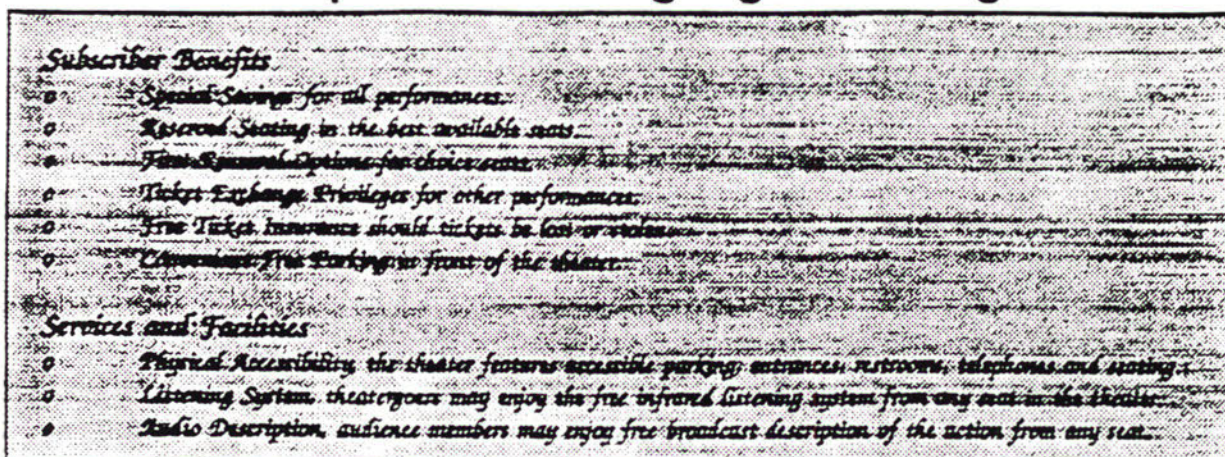 Subscriber Benefits
o Special Savings for all performances.
o Reserved Seating in the best available seats.
o First Renewal Options for choice seats.
o Ticket Exchange Privileges for other performances.
o Free Ticket Insurance should tickets be lost or stolen.
o Convenient Free Parking in front of the theater.
Services and Facilities
o Physical Accessibility, the theater features accessible parking, entrances, restrooms, telephones and seating.
o Listening System, theatergoers may enjoy the free infrared listening system from any seat in the theater.
o Audio Description, audience members may enjoy free broadcast description of the action from any seat.